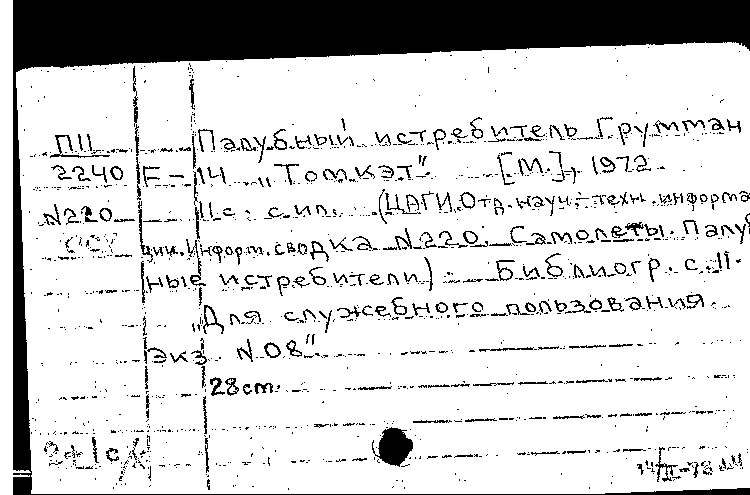 ПII Палубный истребитель Грумман
2240 F-14 „Томкэт". [М.], 1972.
N220 11с. с ил. (ЦАГИ. Отд. науч.-техн. информа
ции. Информ. сводка N220. Самолеты. Палуб
ные истребители). Библиогр. с. 11.
„Для служебного пользования.
Экз. N 08".
28cm.